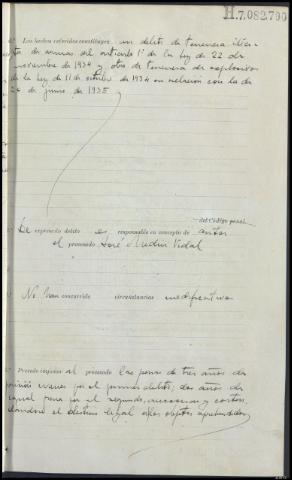 H.7.082,790
2.ª Los hechos referidos constituyen un delito de tenencia ilíci-
ta de armas del artículo 1º de la Ley de 22 de
noviembre de 1934 y otro de tenencia de explosivos
de la Ley de 11 de octubre de 1934 en relación con la de
20 de Junio de 1935
del Código penal.
De expresado delito es responsable en concepto de autor
el procesado José Medin Vidal
No han concurrido circunstancias modificativas
Procede imponer al procesado las penas de tres años de
prisión menor por el primer delito, dos años de
igual pena por el segundo, accesorias y costas
dándose el destino legal a los objetos aprehendidos